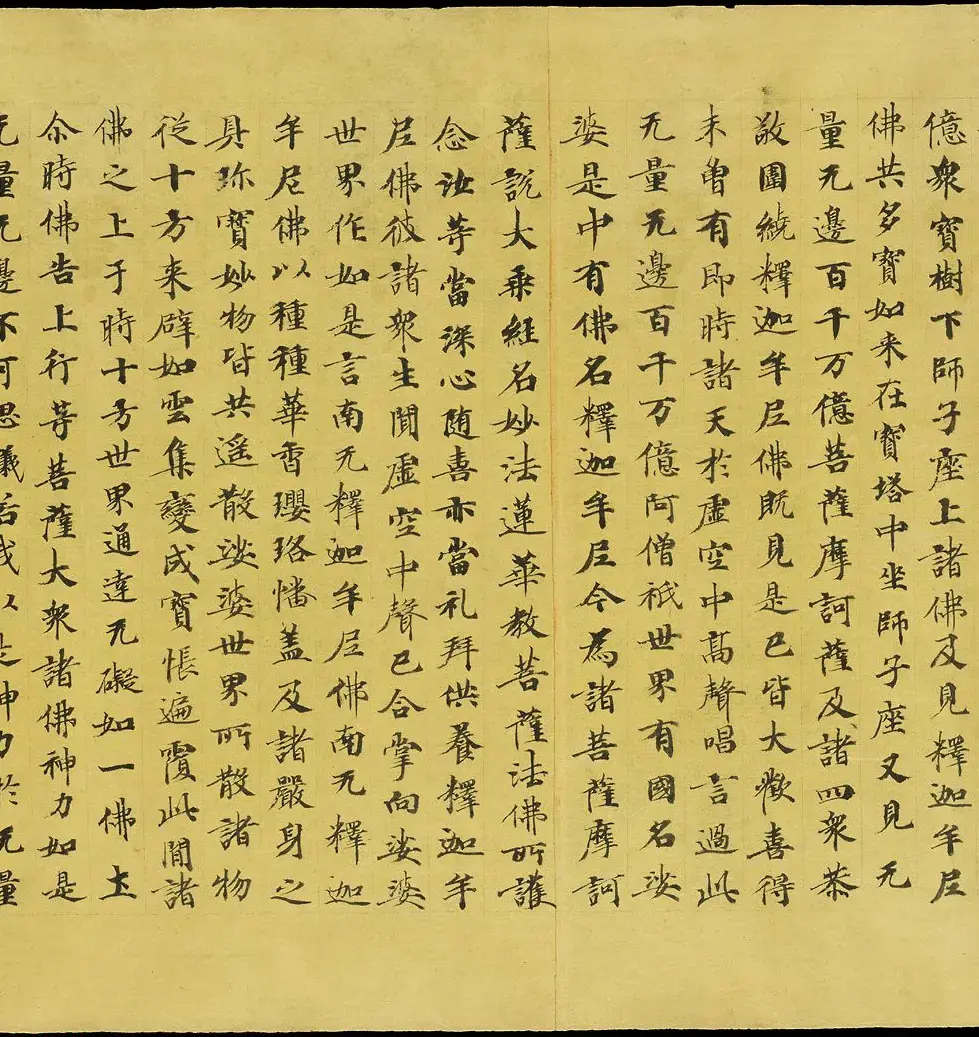 億衆寶樹下師子座上諸佛及見釋迦牟尼
佛共多寶如来在寶塔中坐師子座又見无
量无邊百千万億菩薩摩訶薩及諸四衆恭
敬圍繞釋迦牟尼佛既見是已皆大歡喜得
未曽有即時諸天於虛空中髙聲唱言過此
无量无邊百千万億阿僧祇世界有國名娑
婆是中有佛名釋迦牟尼今為諸菩薩摩訶
薩說大乗経名妙法蓮華教菩薩法佛所護
念汝等當深心随喜亦當礼拜供養釋迦牟
尼佛彼諸衆生聞虛空中聲已合掌向娑婆
世界作如是言南无釋迦牟尼佛南无釋迦
牟尼佛以種種華香瓔珞幡盖及諸嚴身之
具珎寶妙物皆共遥散娑婆世界所散諸物
従十方来辟如雲集變成寶悵遍覆此間諸
佛之上于時十方世界通達无礙如一佛土
尒時佛告上行等菩薩大衆諸佛神力如是
无量无邊不可思議若我以是神力於无量